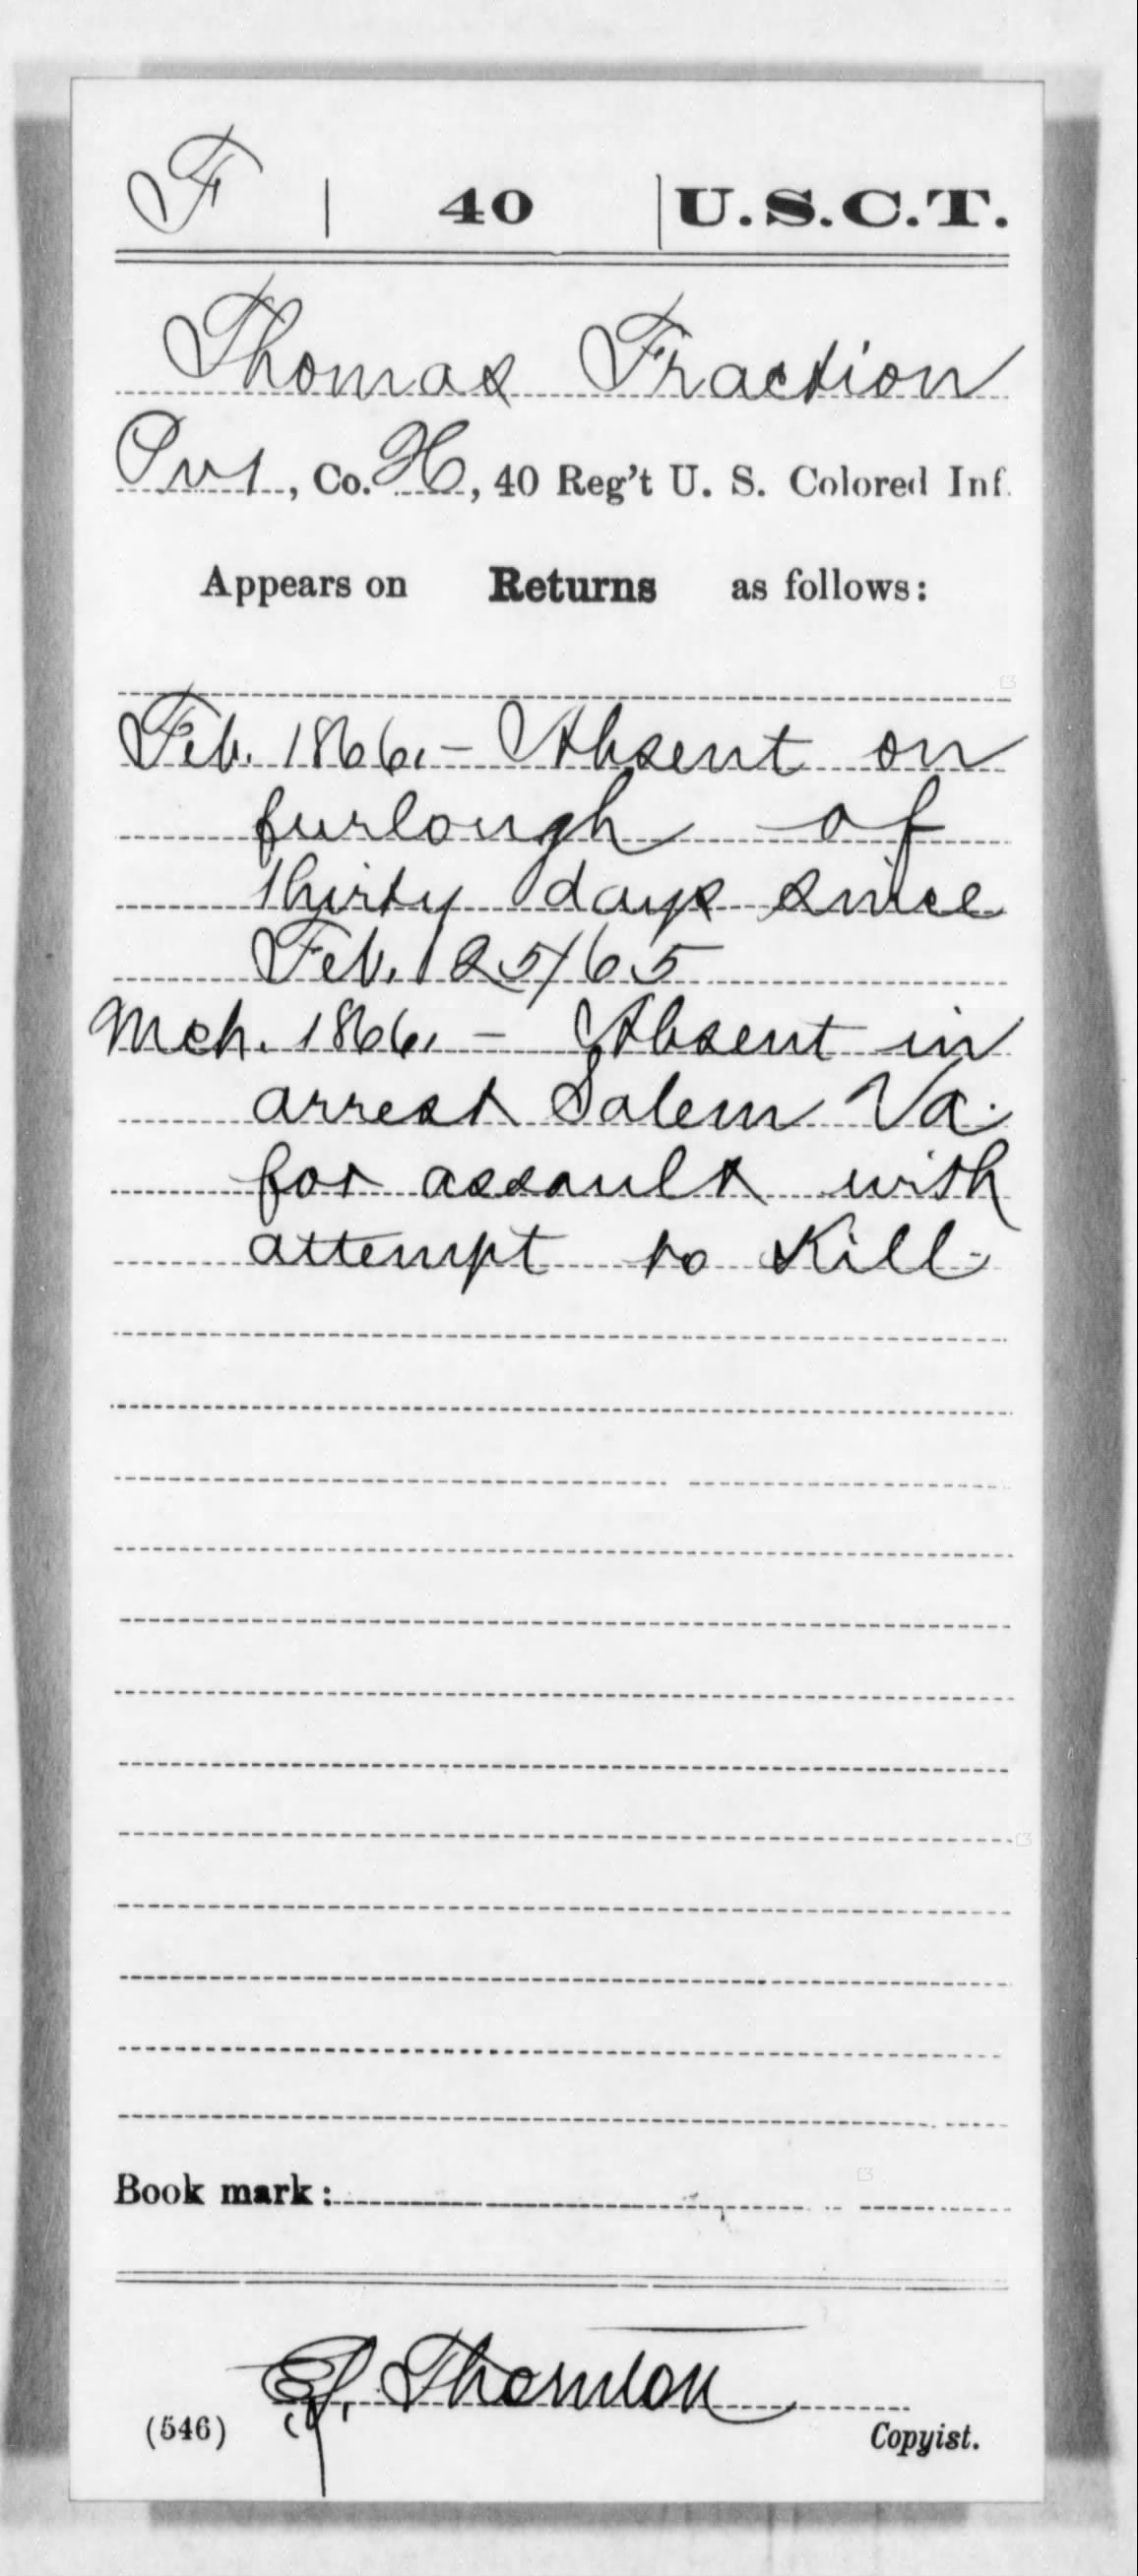 F | 40 | U.S.C.T.
Thomas Fraction
Pvt, Co. H, 40 Reg't U. S. Colored Inf.
Appears on Returns as follows:
Feb. 1866. - Absent on
furlough of
thirty days since
Feb. 25/65
Mch. 1866. - Absent in
arrest Salem Va.
for assault with
attempt to Kill-
Book mark:
Thornton
(546)
Copyist.